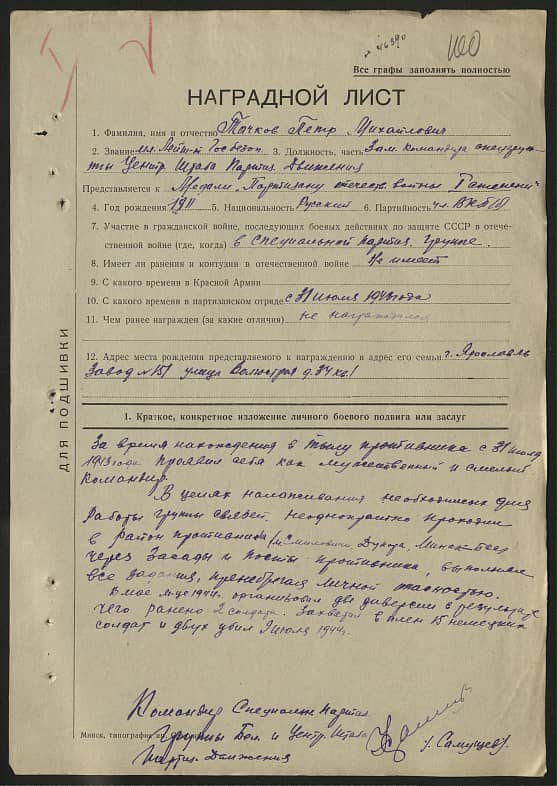 № 46390
100
Все графы заполнять полностью
НАГРАДНОЙ ЛИСТ
1. Фамилия, имя и отчество Точков Петр Михайлович
2. Звание мл. Лейт-т Госбезоп. 3. Должность, часть Зам. Командира спецгруп-
пы Центр Штаба Партиз Движения
Представляется к Медали „Партизану отечеств. войны" I степени
4. Год рождения 1911 5. Национальность Русский 6. Партийность чл. ВКП(б)
7. Участие в гражданской войне, последующих боевых действиях по защите СССР в отече-
ственной войне (где, когда) в Специальной партиз. Группе.
8. Имеет ли ранения и контузии в отечественной войне Не имеет
9. С какого времени в Красной Армии
10. С какого времени в партизанском отряде с 31 июля 1943 года
11. Чем ранее награжден (за какие отличия) не награждался
12. Адрес места рождения представляемого к награждению и адрес его семьи г. Ярославль
Завод № 151 улица д. 24 кв. 1
ДЛЯ ПОДШИВКИ
1. Краткое, конкретное изложение личного боевого подвига или заслуг
За время нахождения в тылу противника с 31 июля
1943 года проявил себя как мужественный и смелый
Командир.
В целях налаживания необходимых для
Работы группы связей, неоднократно проходил
в район противника (м. Смиловичи, Дукора, Минск
через Засады и посты противника, выполнял
все задания, пренебрегая личной опасностью.
В мае м-це 1944г. организовал две диверсии в результате
чего ранено 2 солдата. Захватил в плен 15 немецких
солдат и двух убил 9 июля 1944г.
Командир Специальн Партиз.
Минск, типография
Группы Бел. и Центр. Штаба
Партиз. Движения